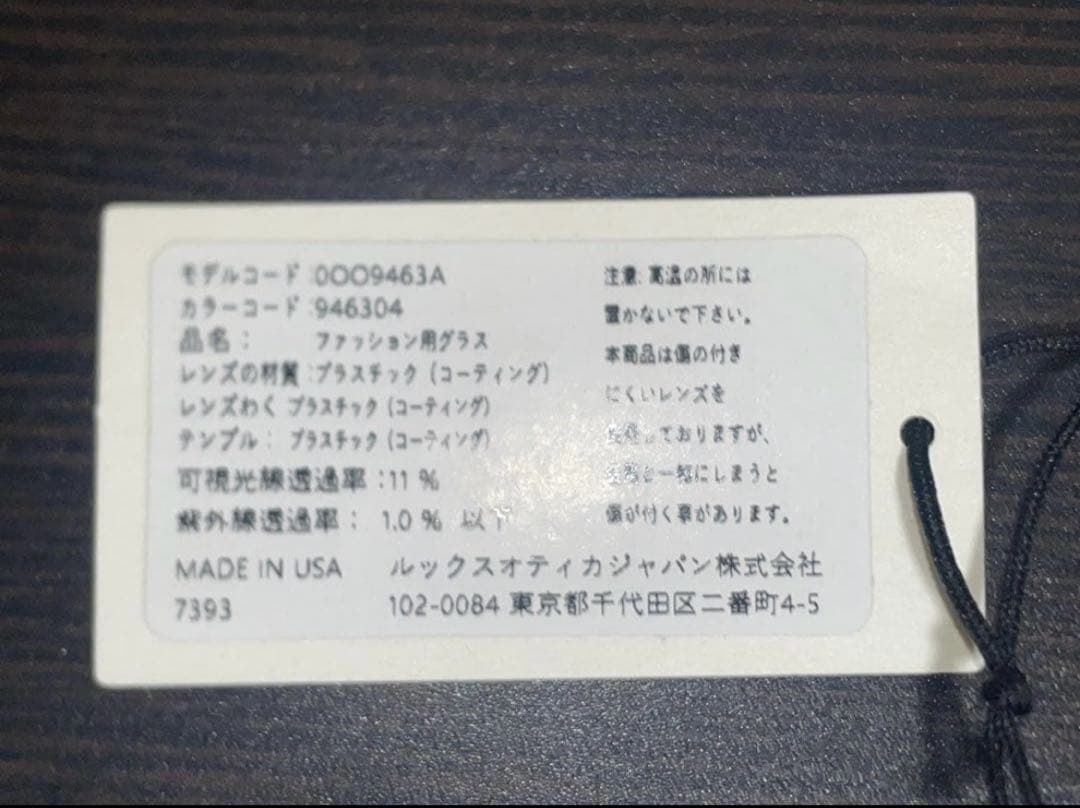 モデルコード :0OO9463A
カラーコード :946304
品名: ファッション用グラス
レンズの材質 :プラスチック (コーティング)
レンズわく プラスチック (コーティング)
テンプル: プラスチック (コーティング)
可視光線透過率 :11 %
紫外線透過率: 1.0 % 以下
MADE IN USA
7393
注意: 高温の所には
置かないで下さい。
本商品は傷の付き
にくいレンズを
しておりますが、
一緒にしまうと
傷が付く事があります。
ルックスオティカジャパン株式会社
102-0084 東京都千代田区二番町4-5